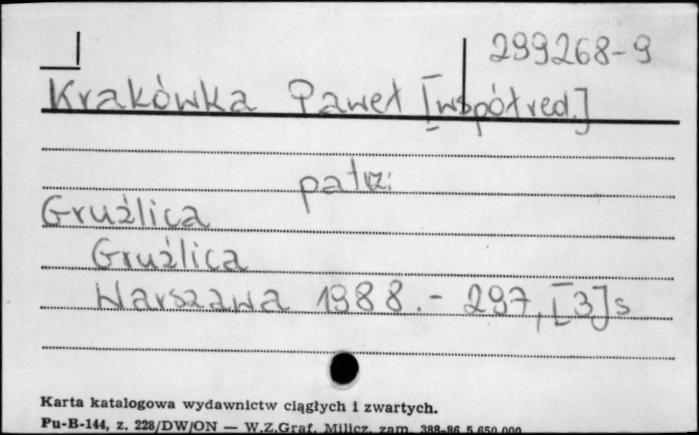 299268-9
Krakówka Paweł [współred.]
patrz:
Gruźlica
Gruźlica
Warszawa 1988.- 297, [3] s
Karta katalogowa wydawnictw ciągłych i zwartych.
Pu-B-144, z. 228/DW/ON — W.Z.Graf. Milicz, zam. 388-86 5.650.000